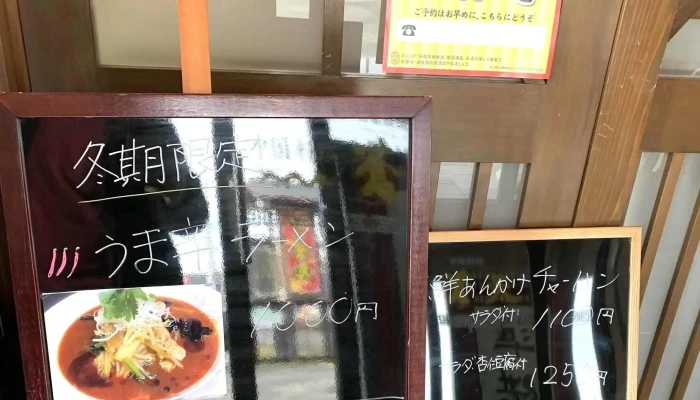 ご予約はお早めに、こちらにどうぞ
冬期限定
うま辛ラーメン
1000円
鮮あんかけチャーハン
サラダ付 1100円
サラダ・杏仁豆腐付
1250円